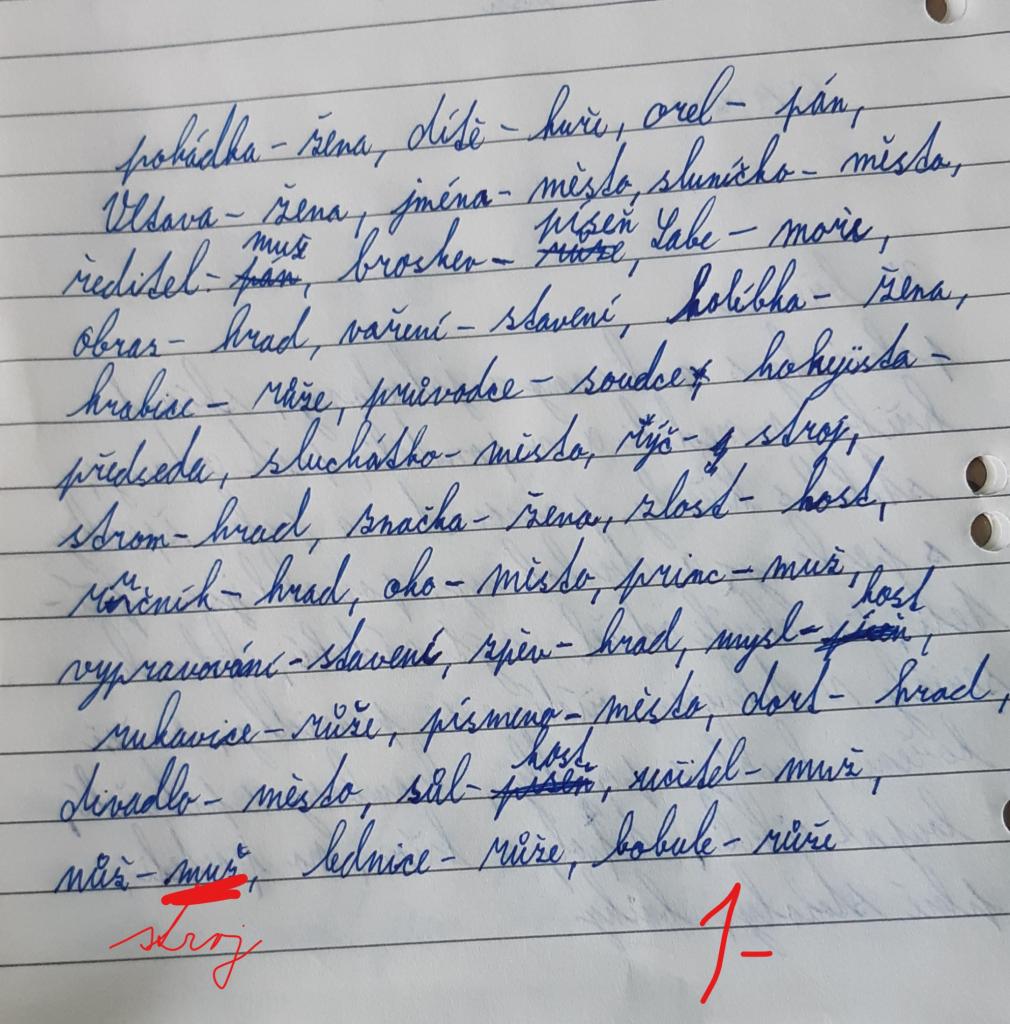 pohádka - žena, dítě - kuře, orel - pán,
Vltava - žena, jména - město, sluníčko - město,
muž píseň
ředitel - pán, broskev - růže, Labe - moře,
obraz - hrad, vaření - stavení, kolíbka - žena,
krabice - růže, průvodce - soudce, hokejista -
předseda, sluchátko - město, rýč - stroj,
strom - hrad, značka - žena, zlost - kost,
ručník - hrad, oko - město, princ - muž,
kost
vypravování - stavení, zpěv - hrad, mysl - píseň,
rukavice - růže, písmeno - město, dort - hrad,
kost
divadlo - město, sůl - píseň, učitel - muž,
nůž - muž, lednice - růže, bobule - růže
stroj 1-